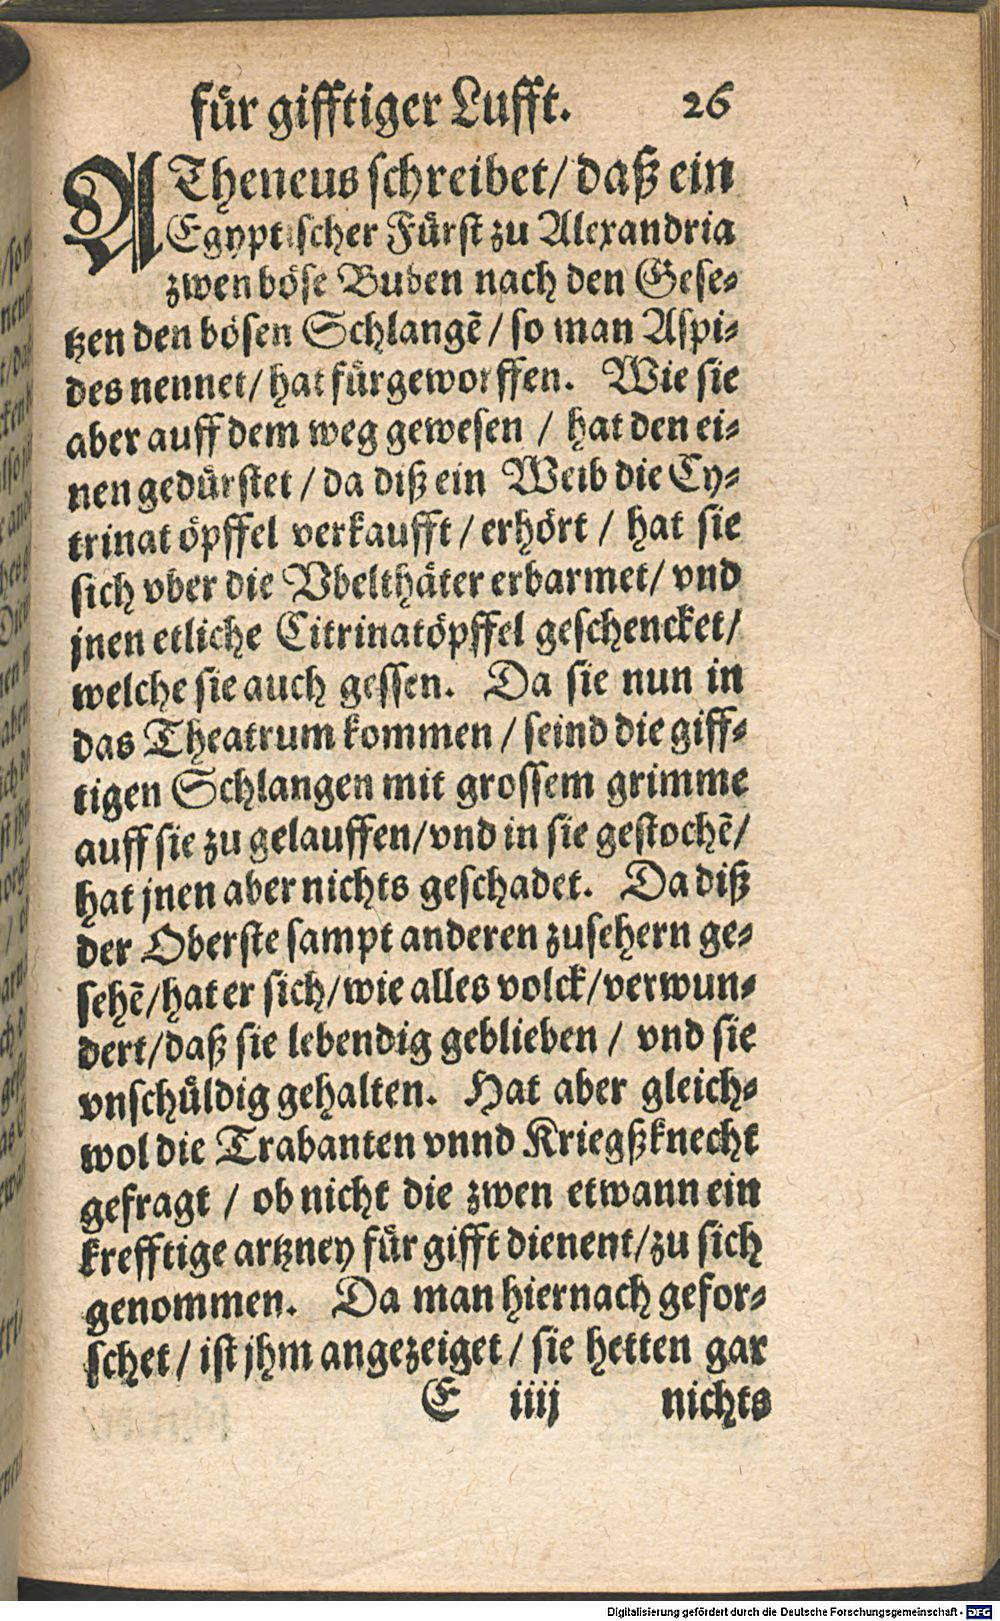 für gifftiger Lufft. 26
ATheneus schreibet/ daß ein
Egyptischer Fürst zu Alexandria
zwen böse Buben nach den Gese⸗
tzen den bösen Schlangẽ / so man Aspi⸗
des nennet/ hat fürgeworffen. Wie sie
aber auff dem weg gewesen / hat den ei⸗
nen gedürstet / da diß ein Weib die Cy⸗
trinatöpffel verkaufft / erhört / hat sie
sich vber die Vbelthäter erbarmet/ vnd
jnen etliche Citrinatöpffel geschencket/
welche sie auch gessen. Da sie nun in
das Theatrum kommen / seind die giff⸗
tigen Schlangen mit grossem grimme
auff sie zu gelauffen/vnd in sie gestochẽ/
hat jnen aber nichts geschadet. Da diß
der Oberste sampt anderen zusehern ge⸗
sehẽ/hat er sich/wie alles volck/verwun⸗
dert/daß sie lebendig geblieben / vnd sie
vnschüldig gehalten. Hat aber gleich⸗
wol die Trabanten vnnd Kriegßknecht
gefragt / ob nicht die zwen etwann ein
krefftige artzney für gifft dienent/zu sich
genommen. Da man hiernach gefor⸗
schet / ist jhm angezeiget / sie hetten gar
E iiij nichts
Digitalisierung gefördert durch die Deutsche Forschungsgemeinschaft - DFG